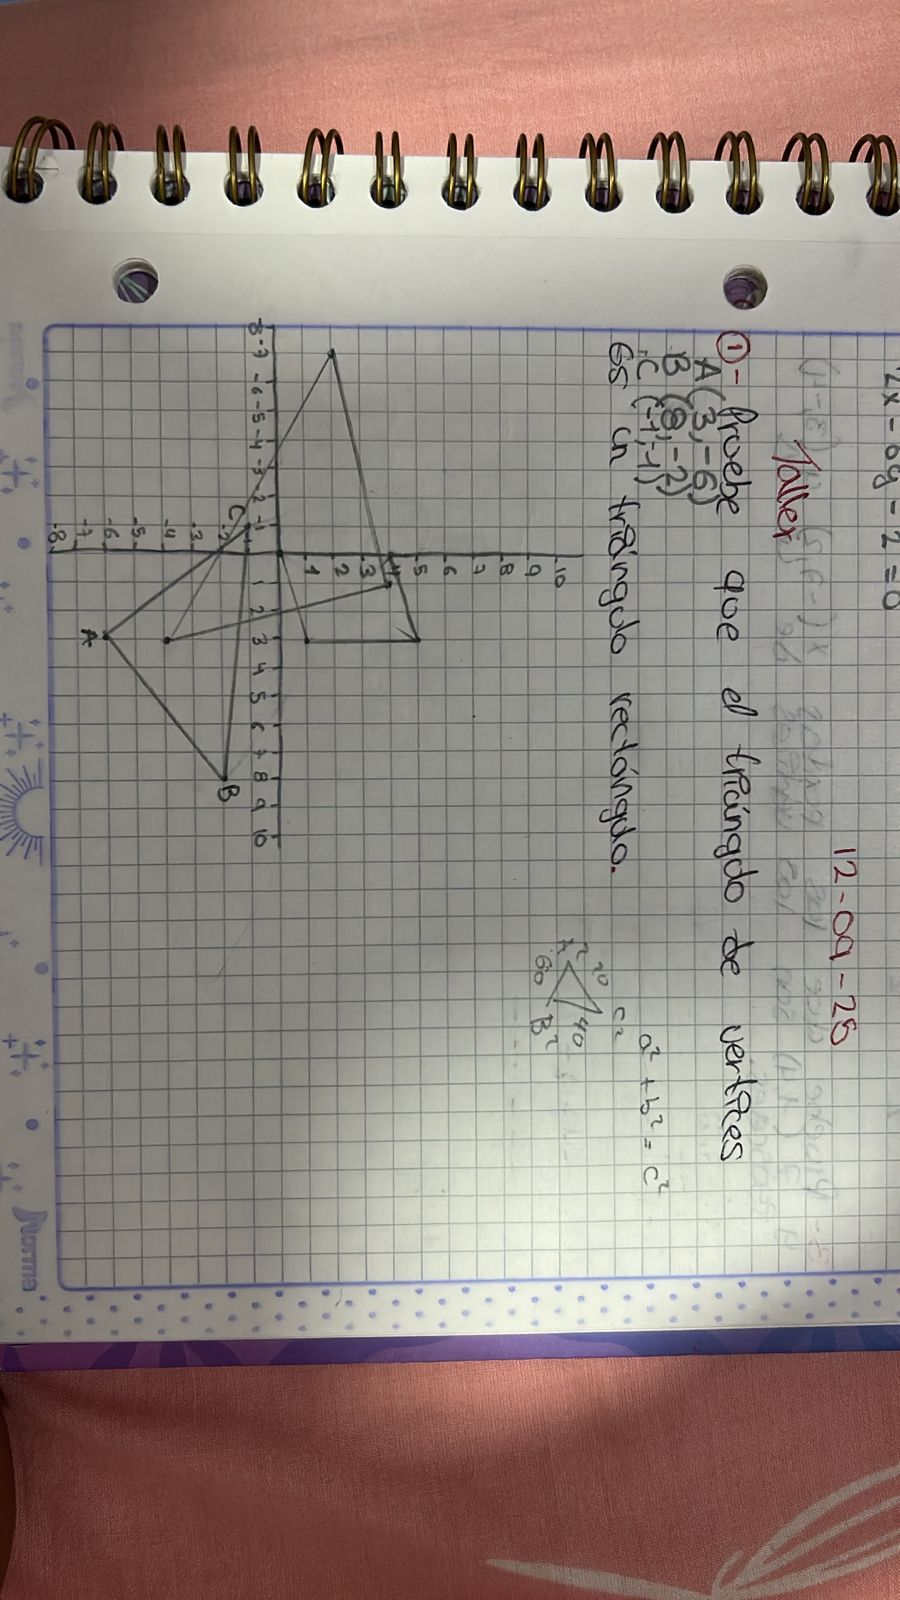 2x - 6y - 2 = 0
12-09-25
Taller
①- Pruebe que el triángulo de vertices
A(3,-6)
B (8,-2)
C (-1,-1)
Es un triángulo rectángulo.
a² + b² = c²
c²
20
40
A²
60
B²
10
9
8
7
6
5
4
3
2
1
-8 -7 -6 -5 -4 -3 -2 -1 1 2 3 4 5 6 7 8 9 10
C
-1
-2
-3
-4
-5
-6
-7
-8
B
A
Norma